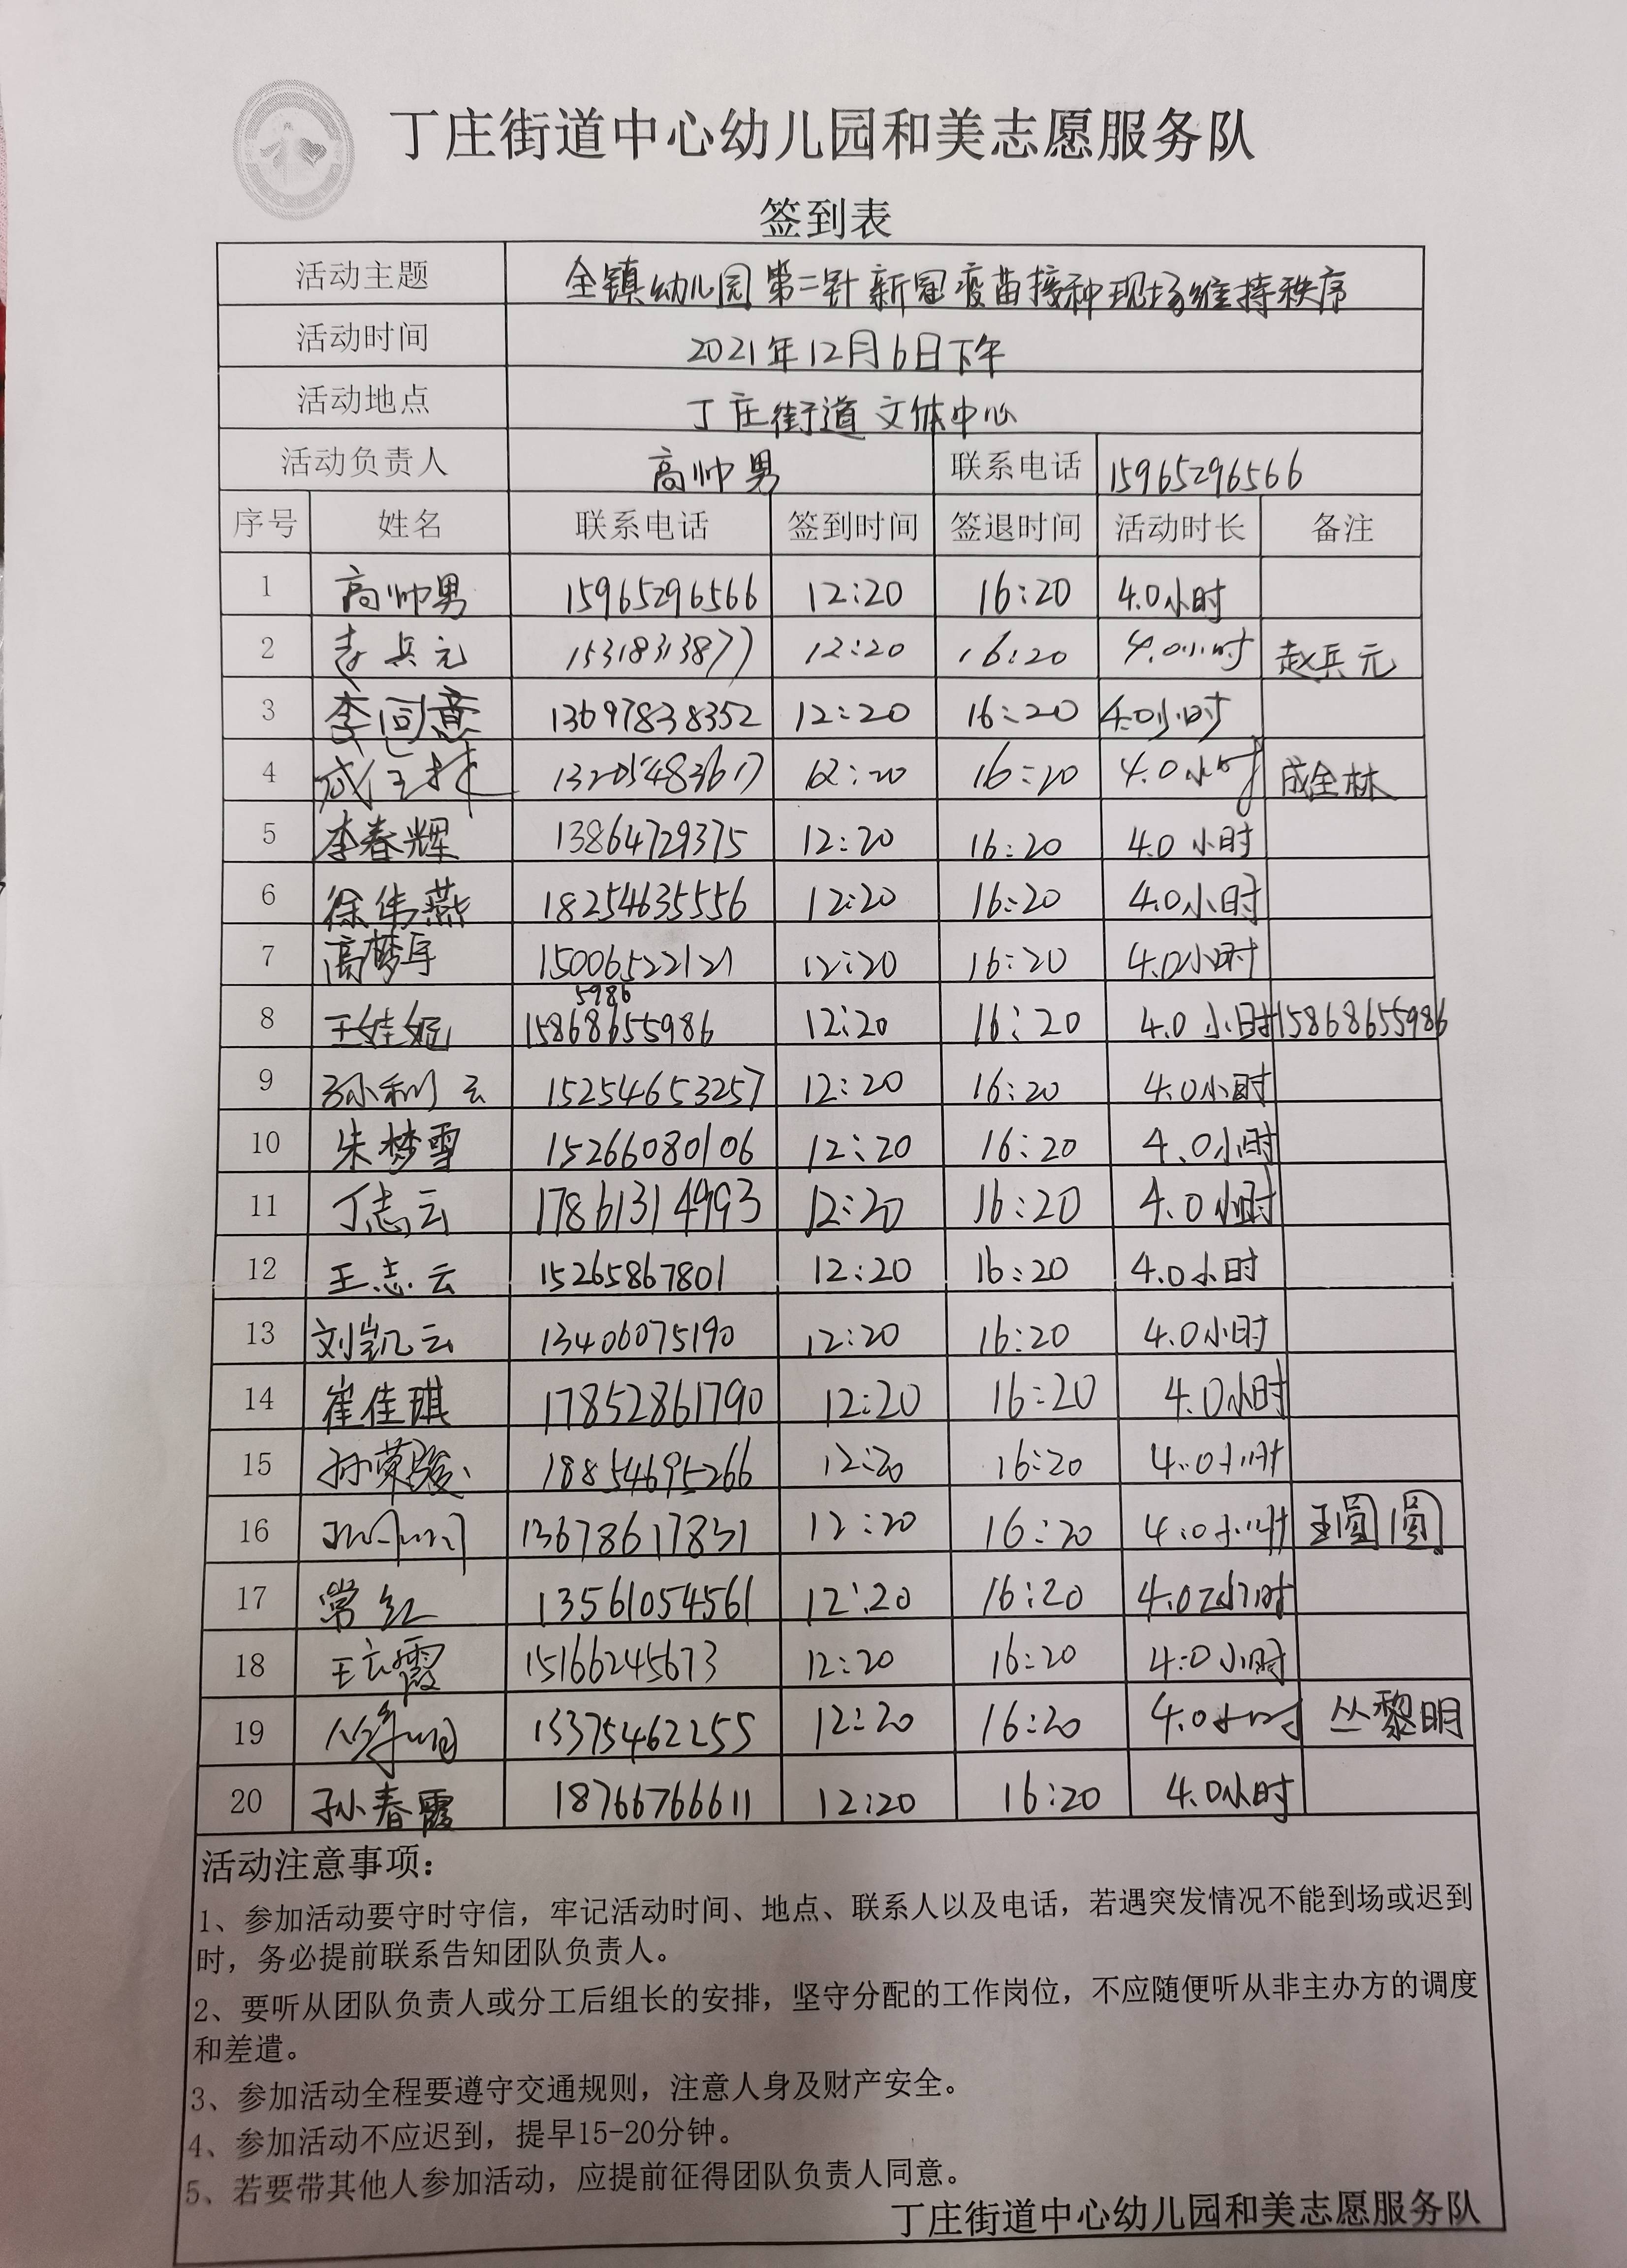 丁庄街道中心幼儿园和美志愿服务队
签到表
活动主题 全镇幼儿园第二针新冠疫苗接种现场维持秩序
活动时间 2021年12月6日下午
活动地点 丁庄街道文体中心
活动负责人 高帅男 联系电话 15965296566
序号 姓名 联系电话 签到时间 签退时间 活动时长 备注
1 高帅男 15965296566 12:20 16:20 4.0小时
2 赵兵元 15318313877 12:20 16:20 4.0小时 赵兵元
3 李同意 13697838352 12:20 16:20 4.0小时
4 成全林 13205483617 12:20 16:20 4.0小时 成全林
5 李春辉 13864729375 12:20 16:20 4.0小时
6 徐伟燕 18254635556 12:20 16:20 4.0小时
7 高梦宇 15006522121 12:20 16:20 4.0小时
5986
8 王娃妮 15868655986 12:20 16:20 4.0小时 15868655986
9 孙利云 15254653257 12:20 16:20 4.0小时
10 朱梦雪 15266080106 12:20 16:20 4.0小时
11 丁志云 17861314993 12:20 16:20 4.0小时
12 王志云 15265867801 12:20 16:20 4.0小时
13 刘凯云 13406075190 12:20 16:20 4.0小时
14 崔佳琪 17852861790 12:20 16:20 4.0小时
15 孙荣骏 18854695266 12:20 16:20 4.0小时
16 13678617831 12:20 16:20 4.0小时 王圆圆
17 常红 13561054561 12:20 16:20 4.0小时
18 王云霞 15166245673 12:20 16:20 4.0小时
19 丛黎明 13375462255 12:20 16:20 4.0小时 丛黎明
20 孙春霞 18766766611 12:20 16:20 4.0小时
活动注意事项：
1、参加活动要守时守信，牢记活动时间、地点、联系人以及电话，若遇突发情况不能到场或迟到
时，务必提前联系告知团队负责人。
2、要听从团队负责人或分工后组长的安排，坚守分配的工作岗位，不应随便听从非主办方的调度
和差遣。
3、参加活动全程要遵守交通规则，注意人身及财产安全。
4、参加活动不应迟到，提早15-20分钟。
5、若要带其他人参加活动，应提前征得团队负责人同意。
丁庄街道中心幼儿园和美志愿服务队